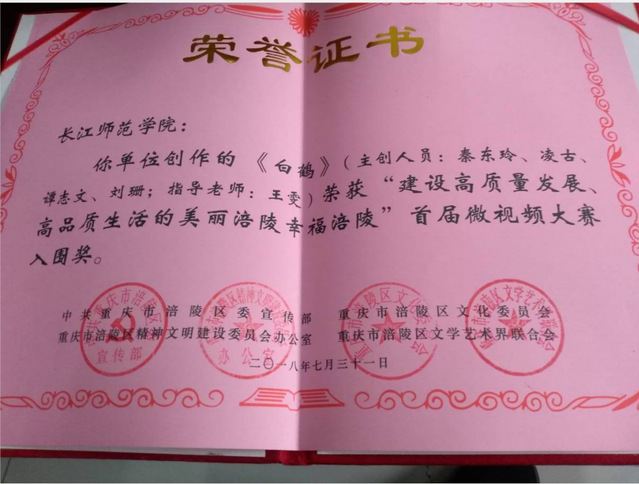 荣誉证书
长江师范学院：
你单位创作的《白鹤》（主创人员：秦东玲、凌古、
谭志文、刘珊；指导老师：王雯）荣获“建设高质量发展、
高品质生活的美丽涪陵幸福涪陵”首届微视频大赛
入围奖。
中共重庆市涪陵区委宣传部 重庆市涪陵区文化委员会
重庆市涪陵区精神文明建设委员会办公室 重庆市涪陵区文学艺术界联合会
二〇一八年七月三十一日
宣传部
办公室